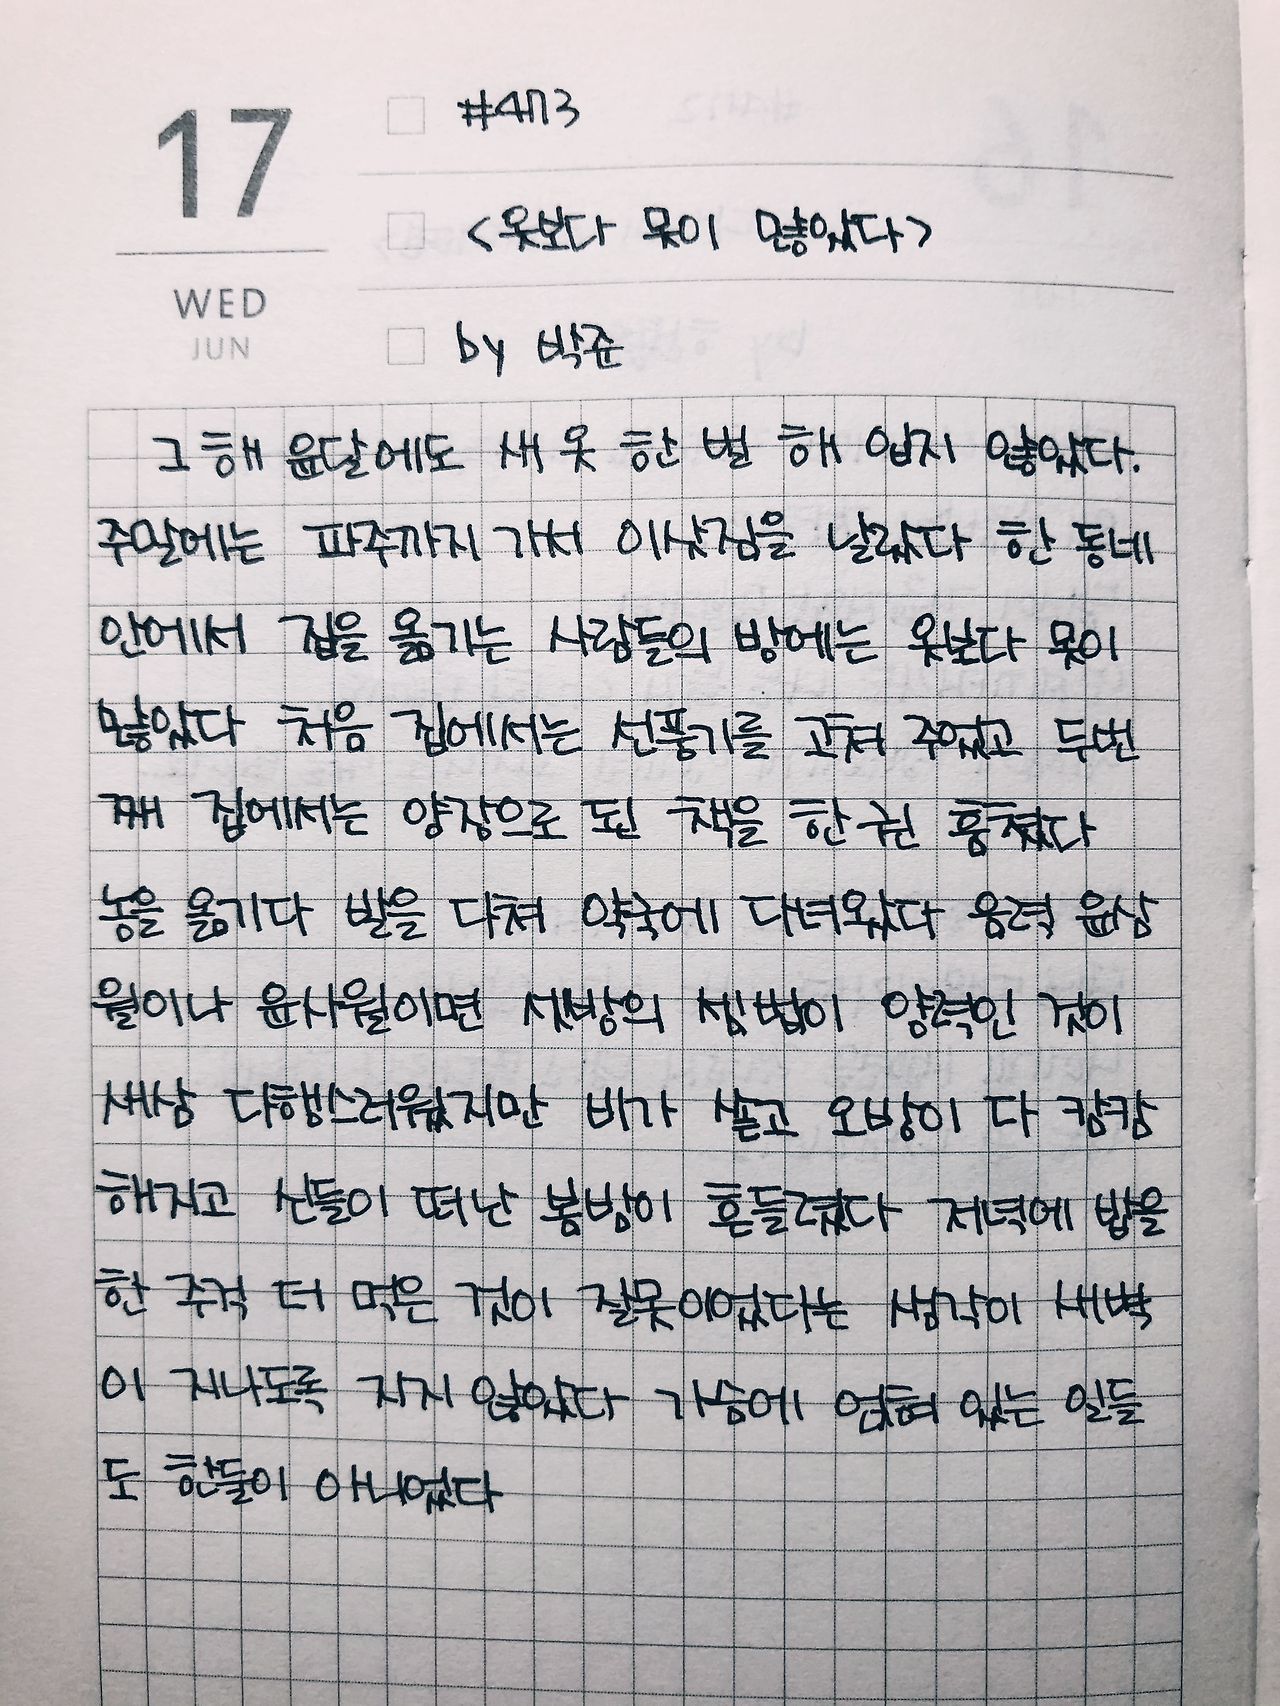 17
WED
JUN
#473
<옷보다 못이 많았다>
by 박준
그 해 윤달에도 새 옷 한 벌 해 입지 않았다.
주말에는 파주까지 가서 이삿짐을 날랐다 한 동네
안에서 집을 옮기는 사람들의 방에는 옷보다 못이
많았다 처음 집에서는 선풍기를 고쳐 주었고 두번
째 집에서는 양장으로 된 책을 한 권 훔쳤다
농을 옮기다 발을 다쳐 약국에 다녀왔다 음력 윤삼
월이나 윤사월이면 셋방의 셈법이 양력인 것이
새삼 다행스러웠지만 비가 쏟고 오방이 다 캄캄
해지고 신들이 떠난 봄밤이 흔들렸다 저녁에 밥을
한 주걱 더 먹은 것이 잘못이었다는 생각이 새벽
이 지나도록 지지 않았다 가슴에 얹혀 있는 일들
도 한둘이 아니었다